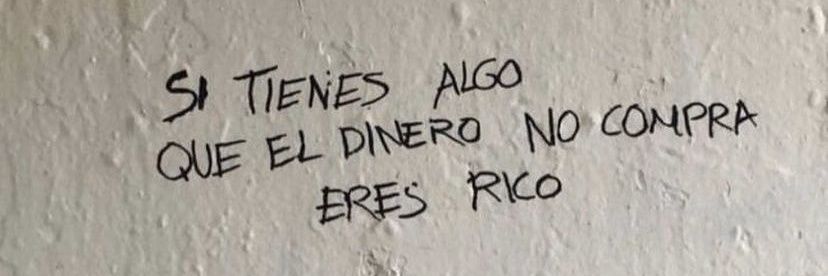 SI TIENES ALGO
QUE EL DINERO NO COMPRA
ERES RICO